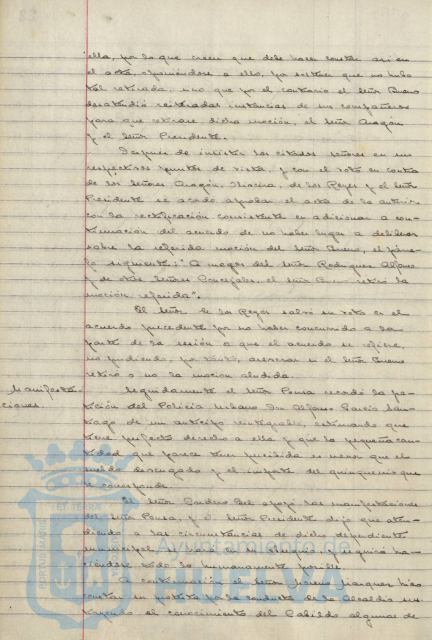 ella, por lo que creen que debe hacer constar así en
el acta, oponiéndose a ello, por sostener que no hubo
tal retirada, sino que por el contrario el Señor Bueno
desatendió reiteradas instancias de sus compañeros
para que retirase dicha moción, el Señor Aragón
y el Señor Presidente.
Después de insistir los citados señores en sus
respectivos puntos de vista, y con el voto en contra
de los Señores Aragón, de los Reyes y el Señor
Presidente se acordó aprobar el acta de la anterior
con la rectificación consistente en adicionar a con-
tinuación del acuerdo de no haber lugar a deliberar
sobre la referida moción del Señor Bueno, el párra-
fo siguiente: "A ruegos del Señor Rodríguez Alfonso
y de otros Señores Concejales, el Señor Bueno retiró la
moción referida".
El Señor de los Reyes salvó su voto en el
acuerdo precedente por no haber concurrido a la
parte de la sesión a que el acuerdo se refiere,
no pudiendo, por tanto, aseverar si el Señor Bueno
retiró o no la moción aludida.
Manifesta-
ciones.
Seguidamente el Señor Ponsa recordó la pe-
tición del Policía urbano Don Alfonso García San-
tiago de un anticipo reintegrable, estimando que
tiene perfecto derecho a ella y que la pequeña can-
tidad que parece tener percibida es menor que el
sueldo devengado y el importe del quinquenio que
le corresponde.
El Señor Cordero Bel apoyó las manifestaciones
del Señor Ponsa, y el Señor Presidente dijo que aten-
diendo a las circunstancias de dicho dependiente
municipal, ha
ciéndose todo lo humanamente posible.
A continuación el Señor hizo
constar su protesta por la conducta de la Alcaldía sus-
trayendo al conocimiento del Cabildo algunas de
Ayuntamiento de